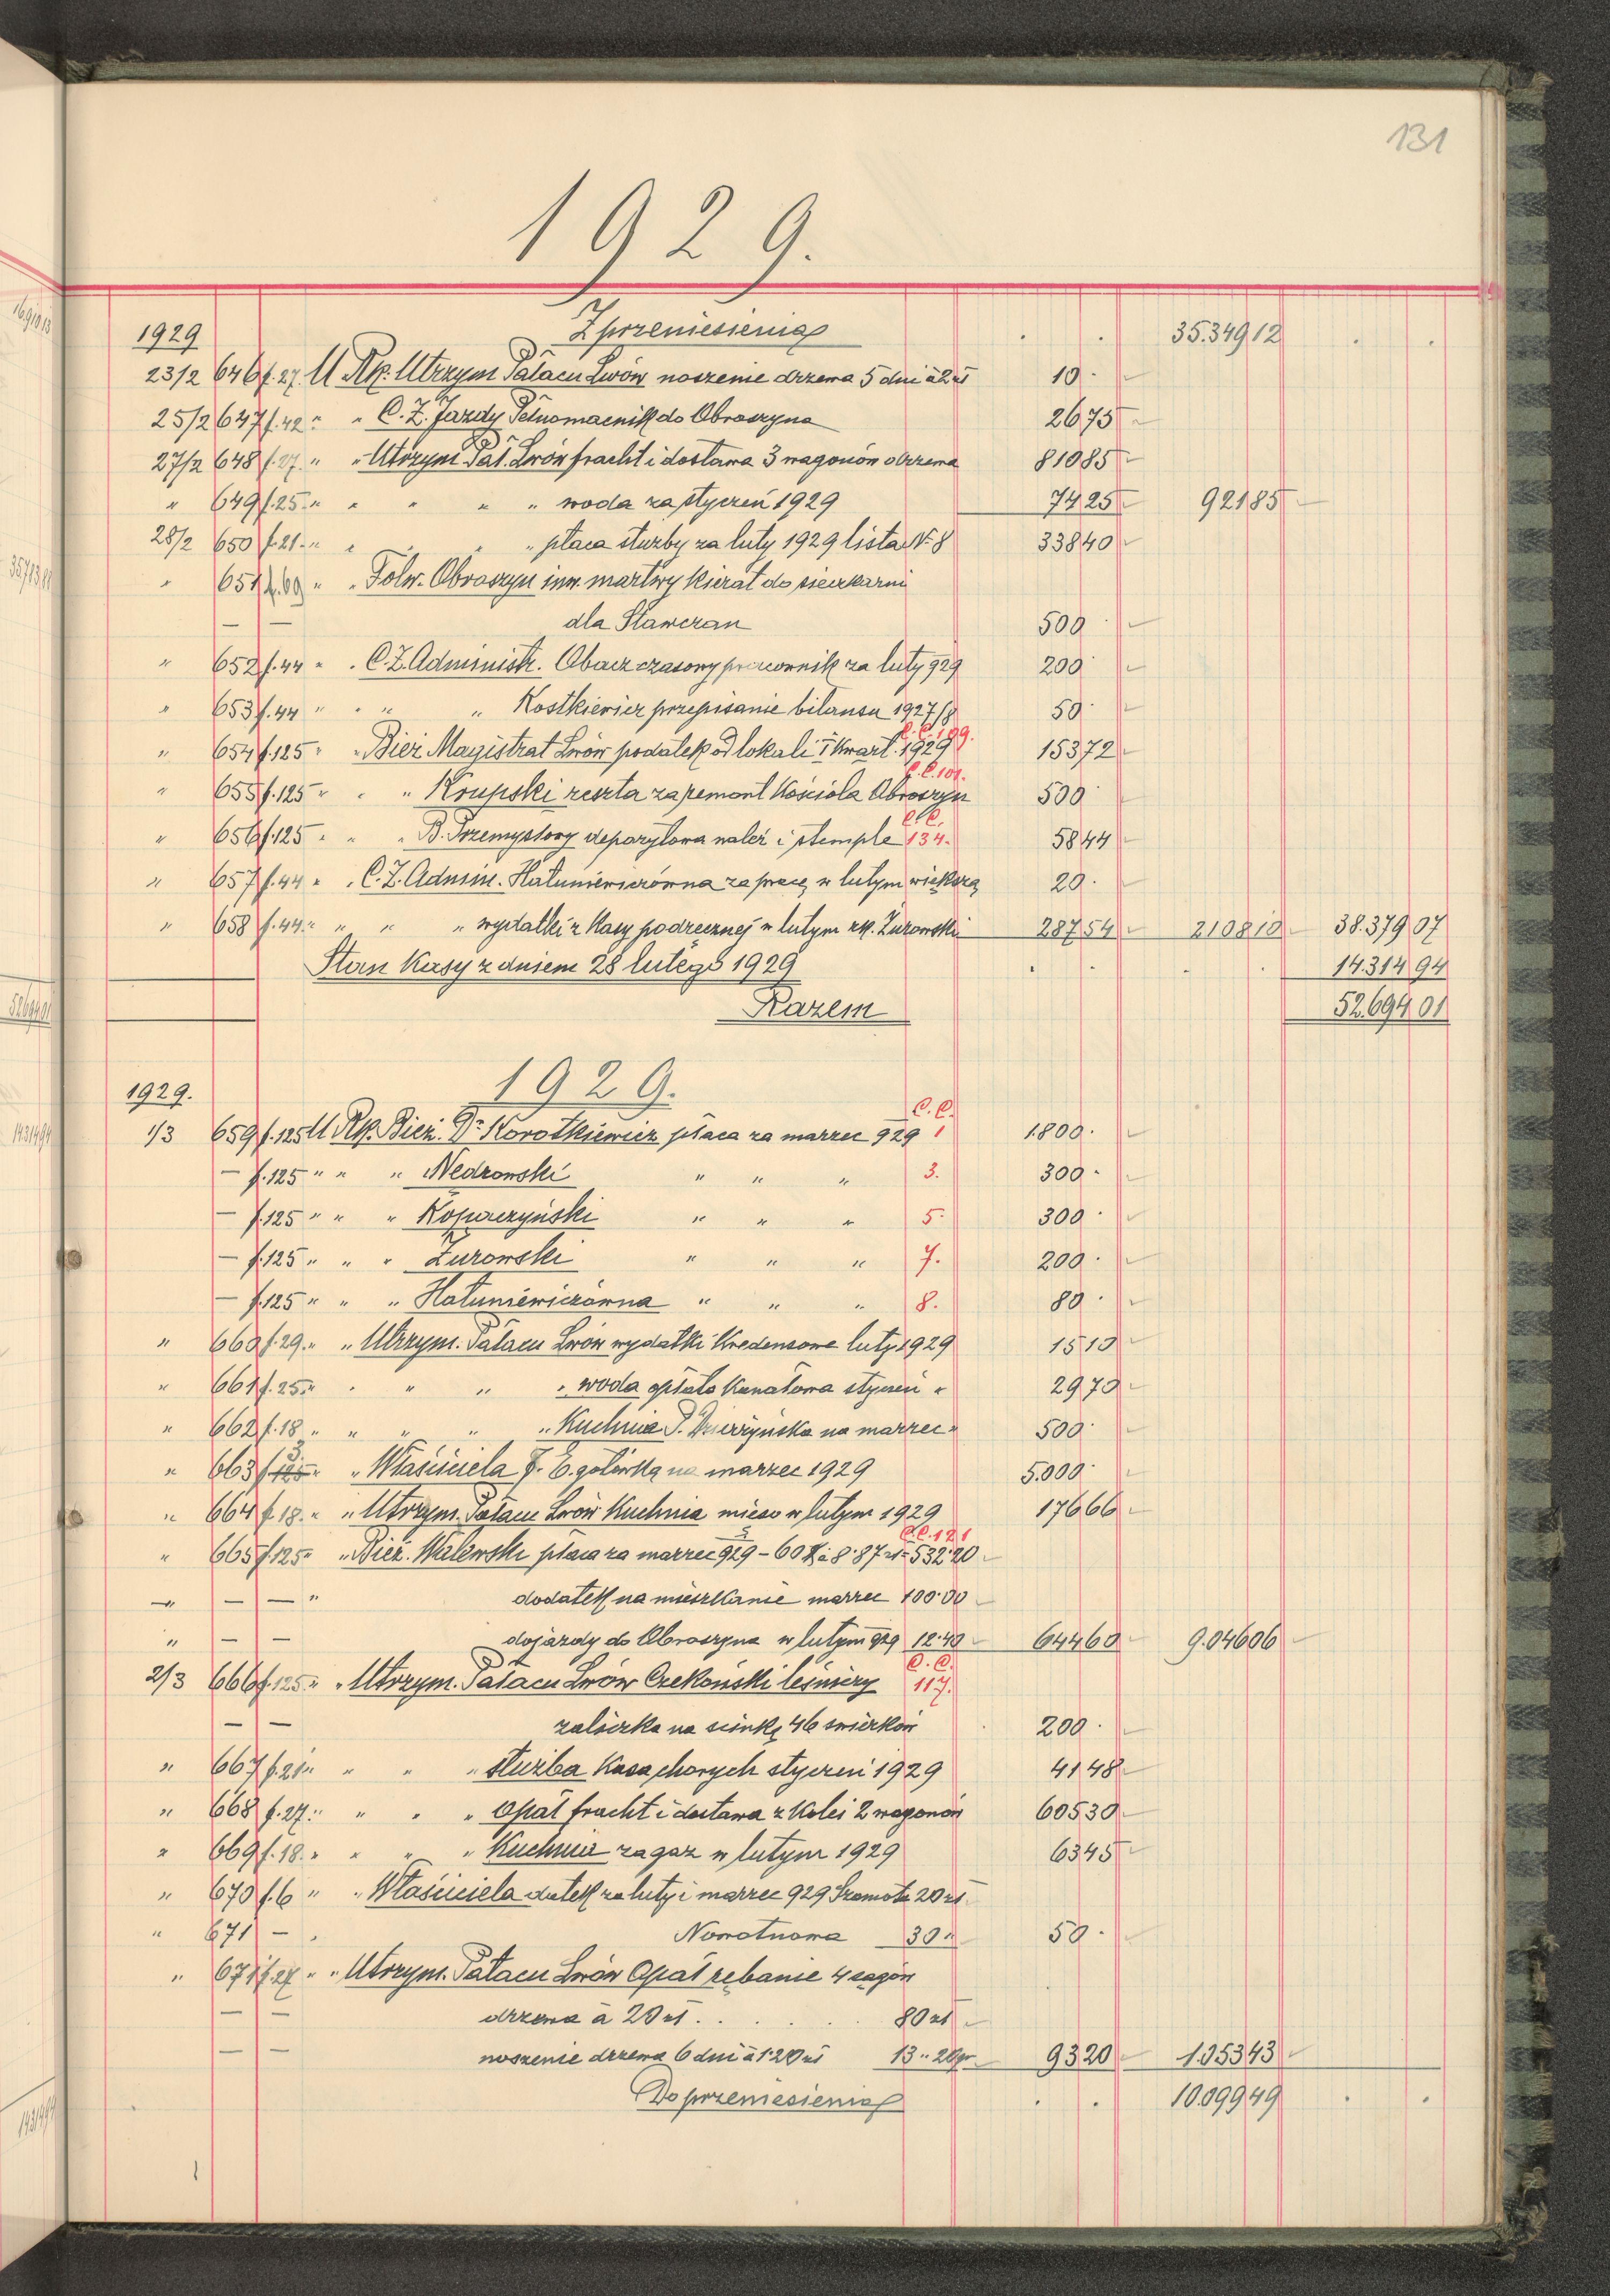 131
1929.
1929 Z przeniesienia . . 35.349 12 . .
23/2 646 f. 27. U Rk. Utrzym Pałacu Lwów noszenie drzewa 5 dni à 2 zł 10 ·
25/2 647 f. 42 " " C. Z. Jazdy Pełnomocnik do Obroszyna 26 75
27/2 648 f. 27. " " Utrzym. Pał. Lwów fracht i dostawa 3 wagonów drzewa 810 85
" 649 f. 25. " " " " " woda za styczeń 1929 74 25 921 85
28/2 650 f. 21. " " " " " płaca służby za luty 1929 lista Nr 8 338 40
" 651 f. 69 " " Folw. Obroszyn inw. martwy Kierat do sieczkarni
— — dla Stawczan 500 ·
" 652 f. 44 " " C. Z. Administr. Obacz czasowy pracownik za luty 929 200 ·
" 653 f. 44 " " " " Kostkiewicz przepisanie bilansu 1927/8 50 ·
" 654 f. 125 " " Bież Magistrat Lwów podatek od lokali I Kwart. 1929 C.C. 109. 153 72
" 655 f. 125 " " " Krupski reszta za remont Kościoła Obroszyn C.C. 101. 500 ·
" 656 f. 125 " " " B. Przemysłowy depozytowa należ i stemple C.C. 134. 58 44
" 657 f. 44 " " C. Z. Admin. Hatuniewiczówna za pracę w lutym większą 20 ·
" 658 f. 44. " " " " wydatki z Kasy podręcznej w lutym rk. Żurowski 287 54 2108 10 38.379 07
Stan Kasy z dniem 28 lutego 1929 . . . . 14.314 94
Razem 52.694 01
1929.
1929.
1/3 659 f. 125 U Rk. Bież. Dr Korotkiewicz płaca za marzec 929 C.C. 1 1.800 ·
— f. 125 " " " Nedzowski " " " 3. 300 ·
— f. 125 " " " Kopaczyński " " " 5. 300 ·
— f. 125 " " " Żurowski " " " 7. 200 ·
— f. 125 " " " Hatuniewiczówna " " " 8. 80 ·
" 660 f. 29. " " Utrzym. Pałacu Lwów wydatki Kredensowe luty 1929 15 10
" 661 f. 25. " " " " " woda opłata Kanałowa styczeń " 29 70
" 662 f. 18 " " " " " Kuchnia P. Dzierżyńska na marzec " 500 ·
" 663 f. 125 3 " " Właściciela J. E. gotówką na marzec 1929 5.000 ·
" 664 f. 18. " " Utrzym. Pałacu Lwów Kuchnia mięso w lutym 1929 176 66
" 665 f. 125 " " Bież. Walewski płaca za marzec 929 – 60 $ à 8·87 zł = 532·20 C.C. 121
" — — " dodatek na mieszkanie marzec 100·00
" — — dojazdy do Obroszyna w lutym 929 12·40 644 60 9.046 06
2/3 666 f. 125 " " Utrzym. Pałacu Lwów Czekoński leśniczy C.C. 117.
— — zaliczka na ścinkę 46 świerków 200 ·
" 667 f. 21 " " " " służba Kasa chorych styczeń 1929 41 48
" 668 f. 27. " " " " Opał fracht i dostawa z Kolei 2 wagonów 605 30
" 669 f. 18. " " " " Kuchnia za gaz w lutym 1929 63 45
" 670 f. 6 " " Właściciela datek za luty i marzec 929 Szamota 20 zł
" 671 — Nowotnowa 30 " 50 ·
" 671 f. 27 " " Utrzym. Pałacu Lwów Opał rębanie 4 sągów
— — drzewa à 20 zł . . . . 80 zł
— — noszenie drzewa 6 dni à 1·20 zł 13 " 20 gr 93 20 1.053 43
Do przeniesienia . . 10.099 49 . .